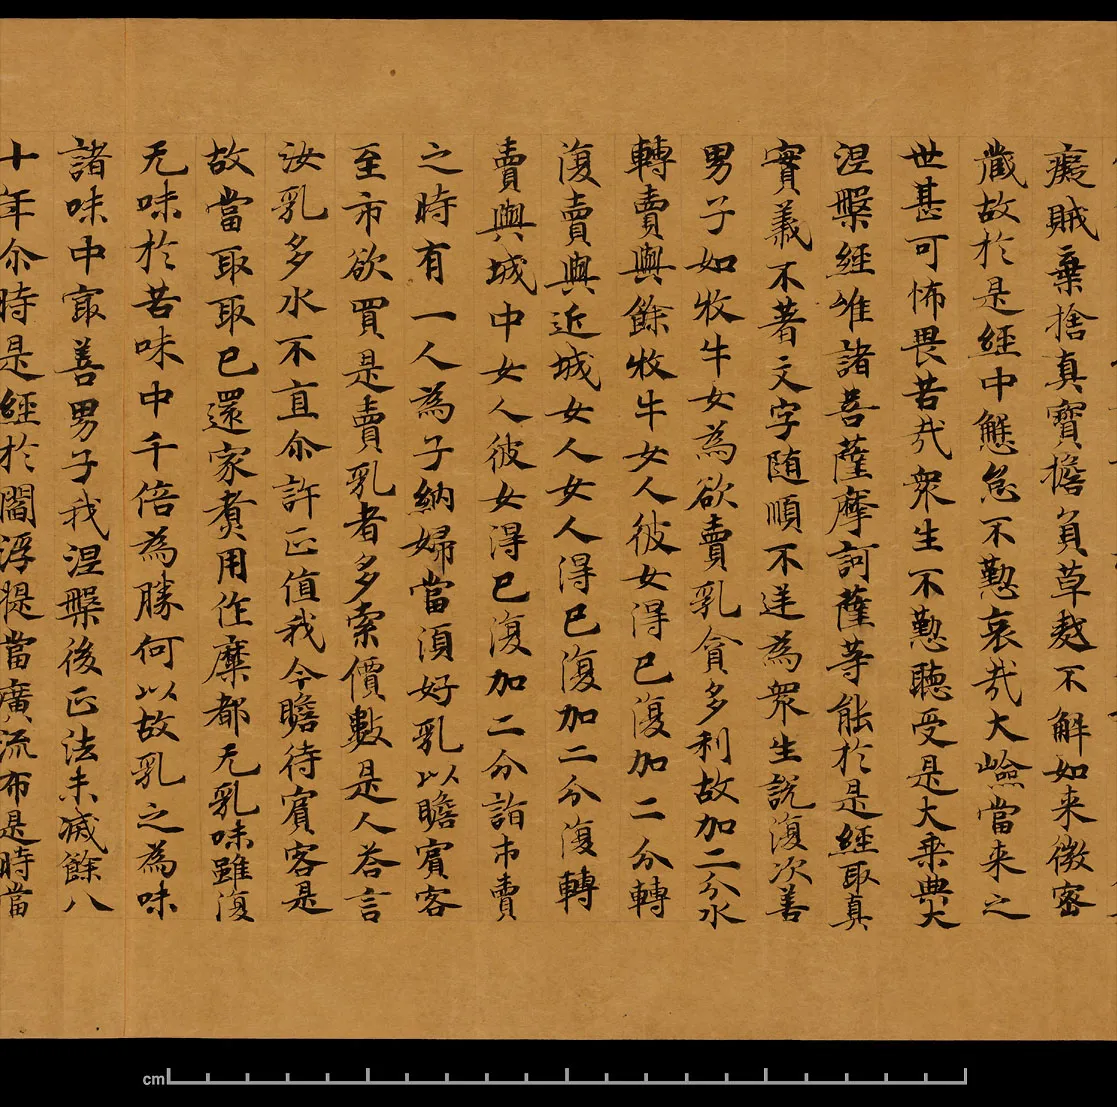 癡賊棄捨真寶擔負草𫾣不解如来微密
藏故於是經中懈怠不懃哀㢤大嶮當来之
世甚可怖畏苦㢤衆生不懃聽受是大乗典大
涅槃經唯諸菩薩摩訶薩等能於是經取真
實義不著文字随順不逆為衆生說復次善
男子如牧牛女為欲賣乳貪多利故加二分水
轉賣與餘牧牛女人彼女得已復加二分轉
復賣與近城女人女人得已復加二分復轉
賣與城中女人彼女得已復加二分詣市賣
之時有一人為子納婦當湏好乳以瞻賓客
至市欲買是賣乳者多索價數是人荅言
汝乳多水不直尒許正值我今瞻待賓客是
故當取取已還家煑用作糜都无乳味雖復
无味於苦味中千倍為勝何以故乳之為味
諸味中冣善男子我涅槃後正法未滅餘八
十年尒時是經於閻浮提當廣流布是時當